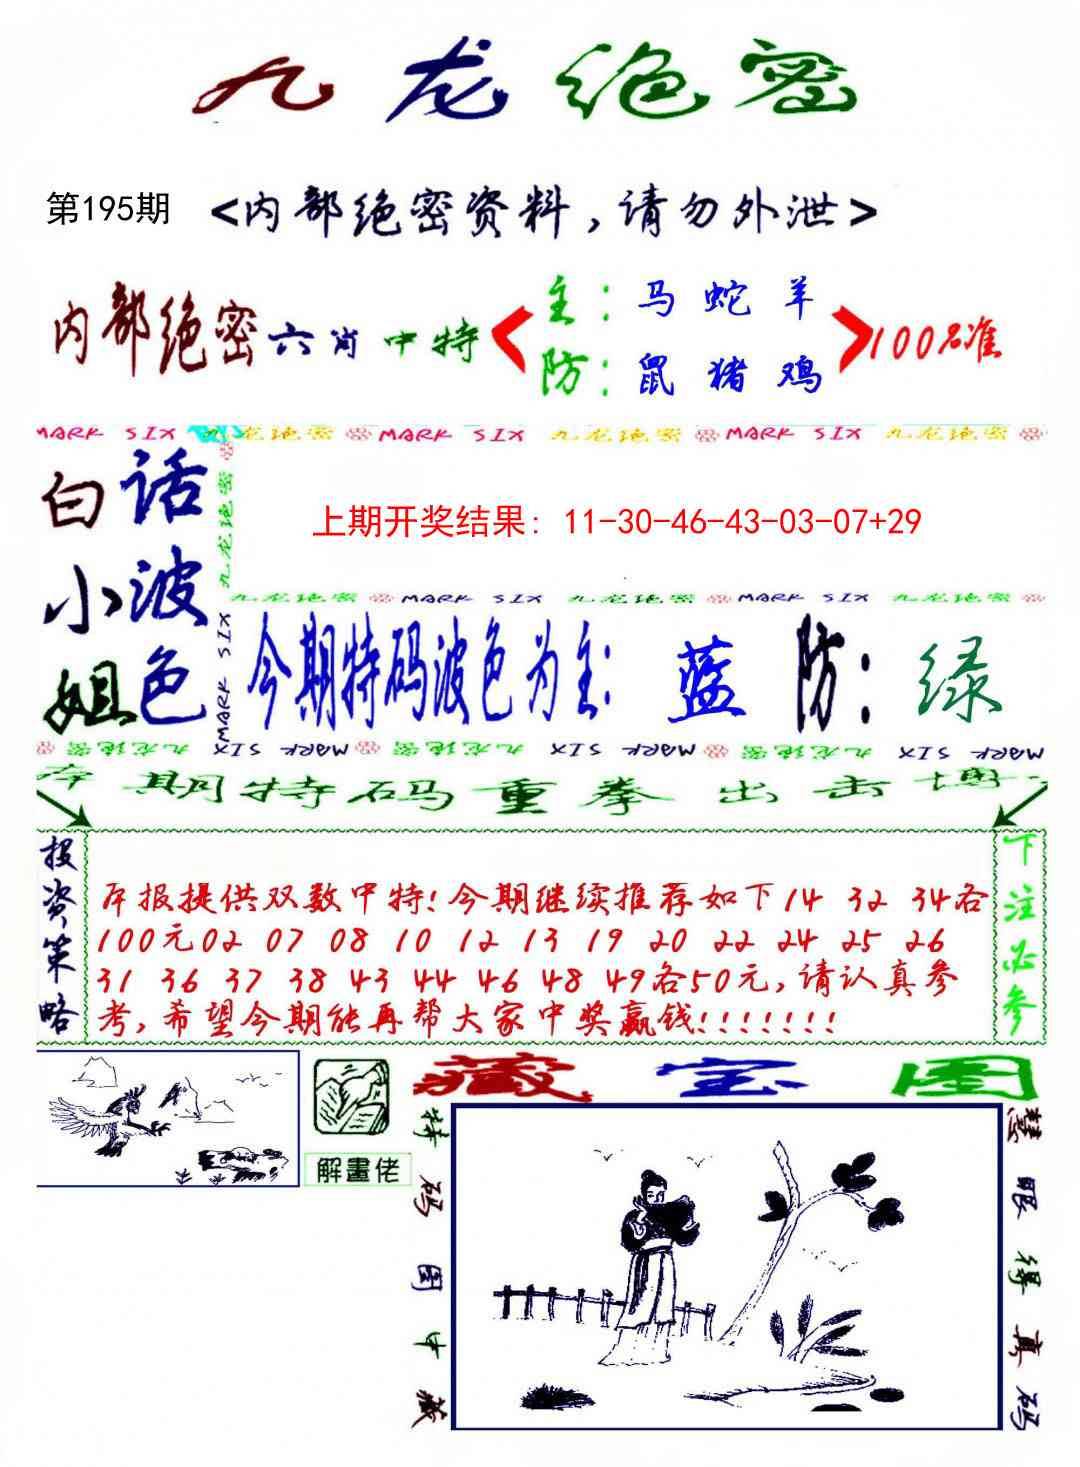 九龙绝密
第195期 <内部绝密资料,请勿外泄>
内部绝密六肖中特
主: 马 蛇 羊
防: 鼠 猪 鸡
100%准
MARK SIX 九龙绝密 MARK SIX 九龙绝密 MARK SIX 九龙绝密
白小姐
话波色
九龙绝密
MARK SIX
上期开奖结果: 11-30-46-43-03-07+29
九龙绝密 MARK SIX 九龙绝密 MARK SIX 九龙绝密
今期特码波色为主: 蓝 防: 绿
九龙绝密 MARK SIX 九龙绝密 MARK SIX 九龙绝密 MARK SIX
本期特码重拳出击博
投资策略
本报提供双数中特!今期继续推荐如下14 32 34各
100元02 07 08 10 12 13 19 20 22 24 25 26
31 36 37 38 43 44 46 48 49各50元,请认真参
考,希望今期能再帮大家中奖赢钱!!!!!!!
下注必参
解畫佬
藏宝图
特码图中藏
慧眼得真码